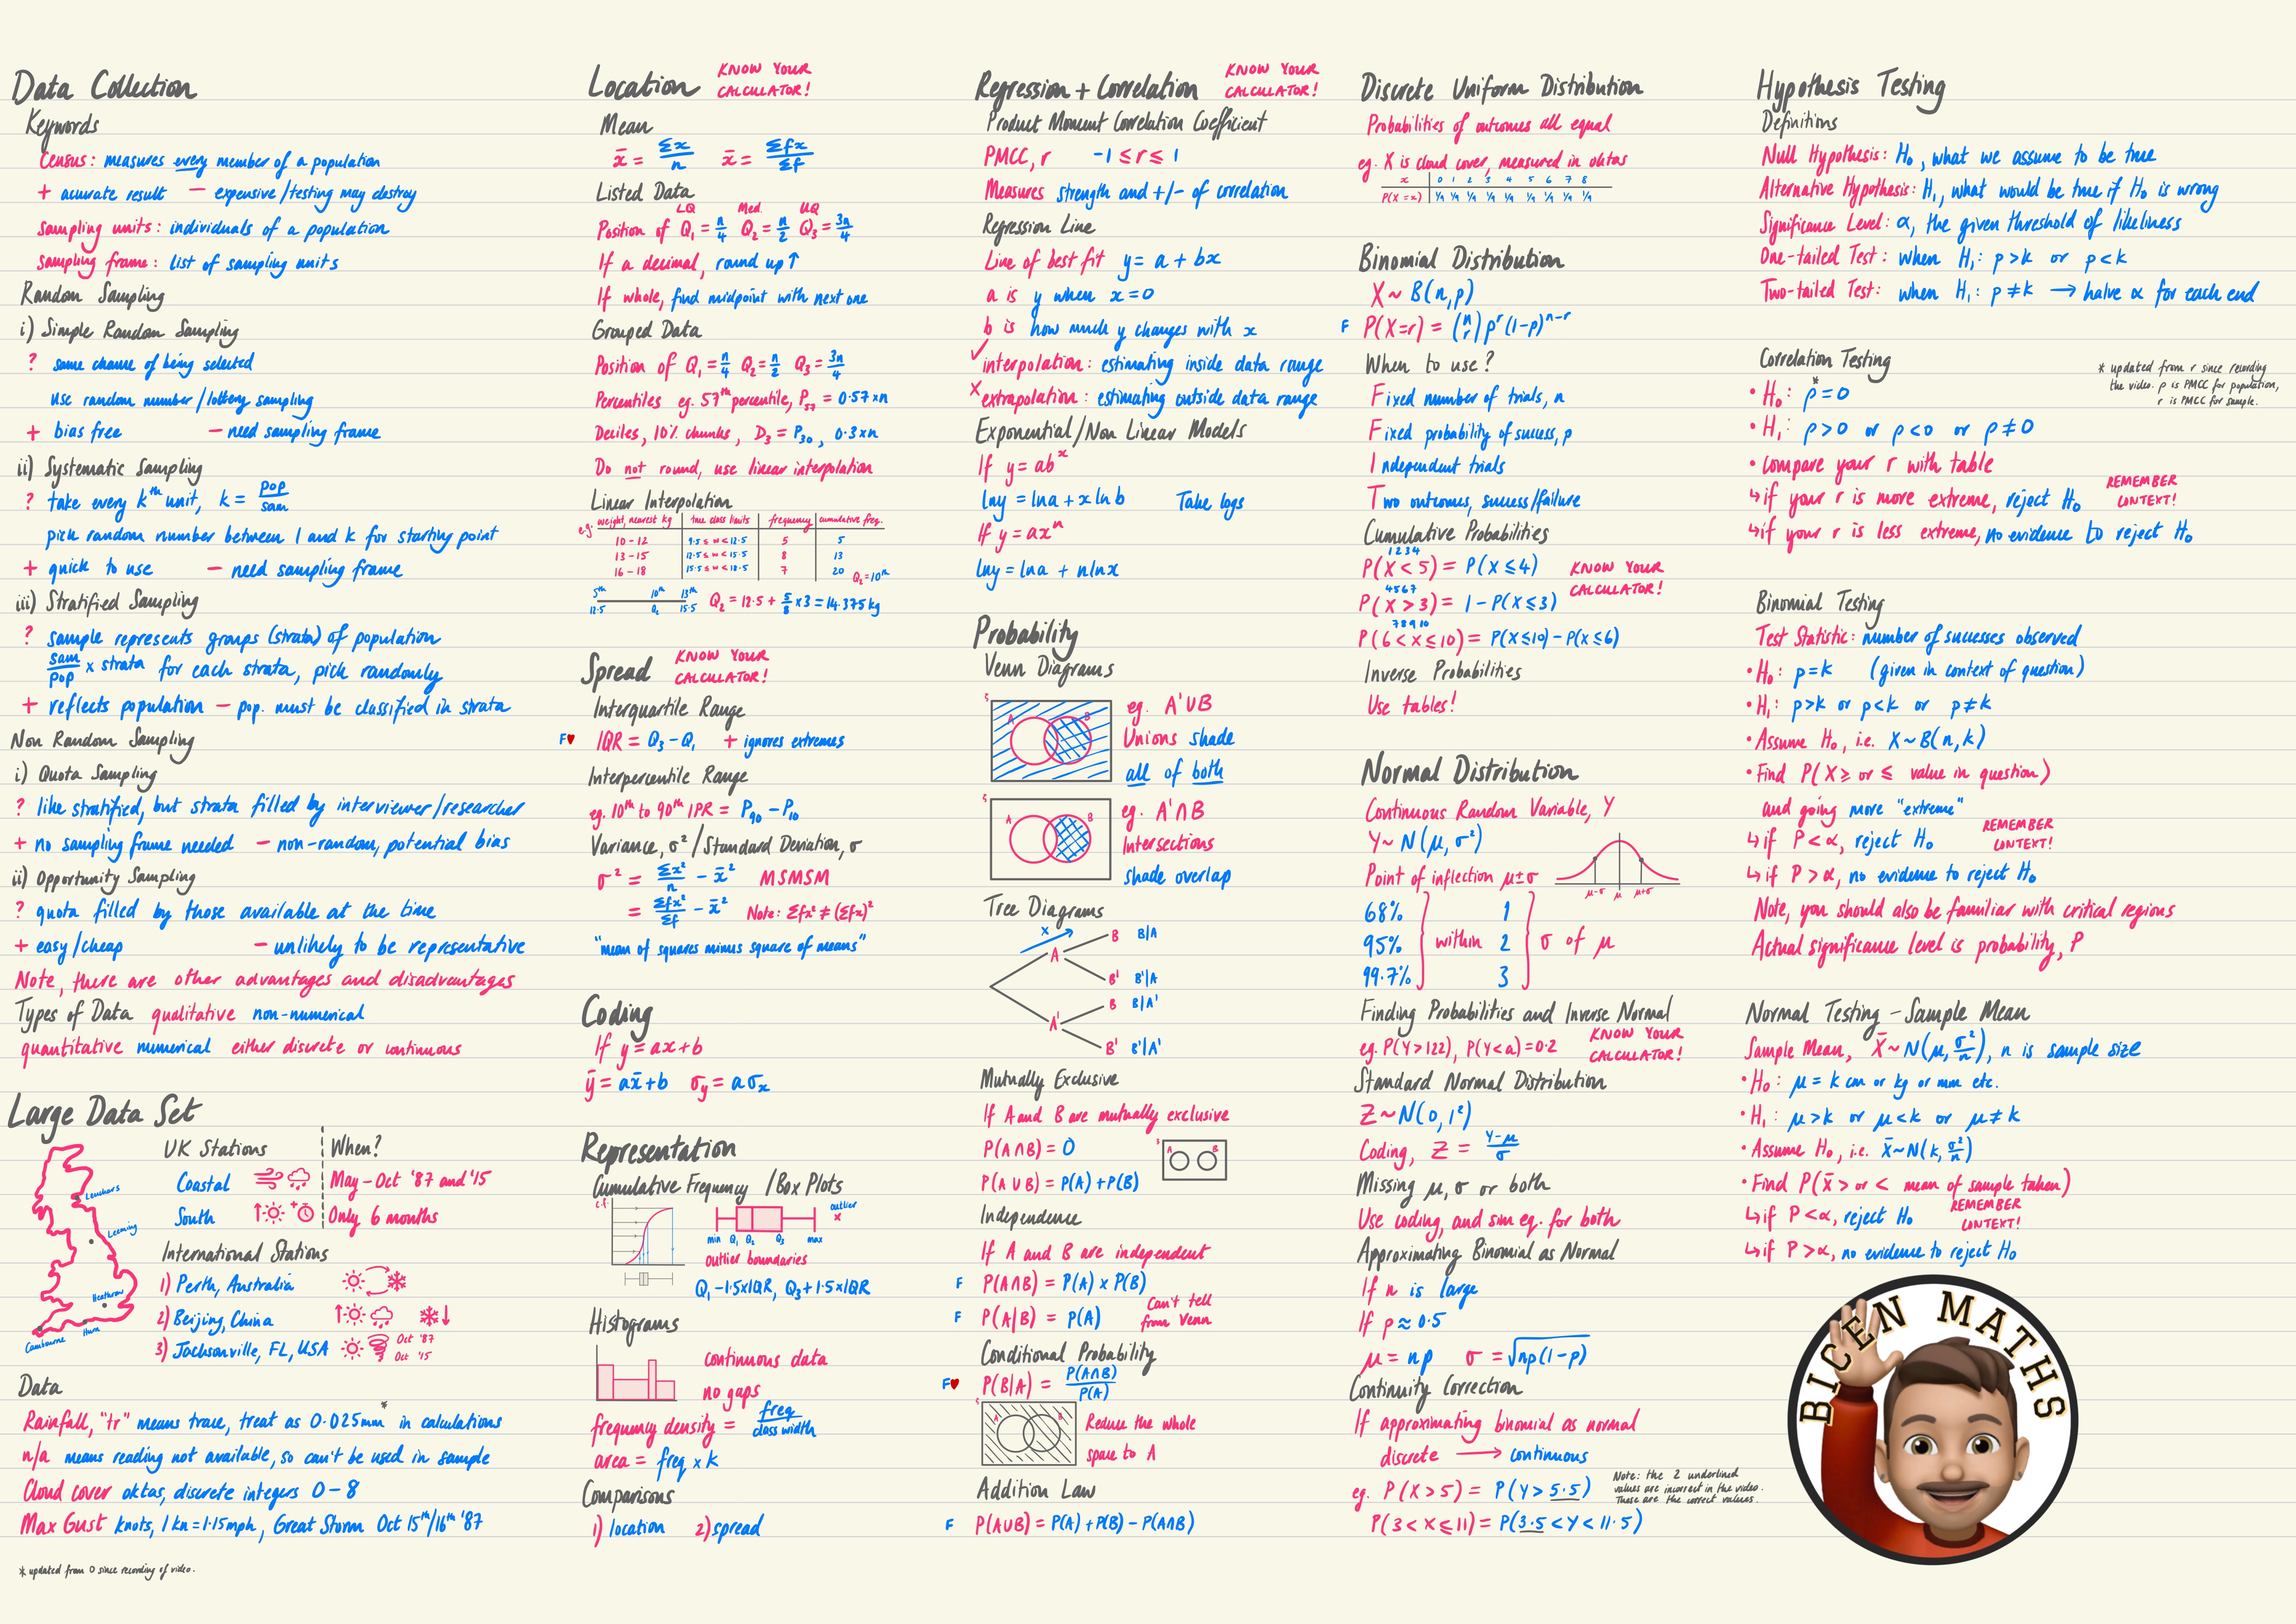 Data Collection
Keywords
Census: measures every member of a population
+ acurate result − expensive/testing may destroy
sampling units: individuals of a population
sampling frame: list of sampling units
Random Sampling
i) Simple Random Sampling
? same chance of being selected
use random number/lottery sampling
+ bias free − need sampling frame
ii) Systematic Sampling
? take every kᵗʰ unit, k = pop/sam
pick random number between 1 and k for starting point
+ quick to use − need sampling frame
iii) Stratified Sampling
? sample represents groups (strata) of population
sam/pop x strata for each strata, pick randomly
+ reflects population − pop. must be classified in strata
Non Random Sampling
i) Quota Sampling
? like stratified, but strata filled by interviewer/researcher
+ no sampling frame needed − non-random, potential bias
ii) Opportunity Sampling
? quota filled by those available at the time
+ easy/cheap − unlikely to be representative
Note, there are other advantages and disadvantages
Types of Data qualitative non-numerical
quantitative numerical either discrete or continuous
Large Data Set
UK Stations When?
Coastal May - Oct '87 and '15
South Only 6 months
Leuchars
Leeming
Heathrow
Hurn
Cambourne
International Stations
1) Perth, Australia
2) Beijing, China
3) Jacksonville, FL, USA Oct '87 Oct '15
Data
Rainfall, "tr" means trace, treat as 0.025mm* in calculations
n/a means reading not available, so can't be used in sample
Cloud cover oktas, discrete integers 0-8
Max Gust knots, 1 kn = 1.15mph, Great Storm Oct 15ᵗʰ/16ᵗʰ '87
* updated from 0 since recording of video.
Location KNOW YOUR CALCULATOR!
Mean
x̄ = Σx/n x̄ = Σfx/Σf
Listed Data
LQ Med. UQ
Position of Q₁ = n/4 Q₂ = n/2 Q₃ = 3n/4
If a decimal, round up↑
If whole, find midpoint with next one
Grouped Data
Position of Q₁ = n/4 Q₂ = n/2 Q₃ = 3n/4
Percentiles eg. 57ᵗʰ percentile, P₅₇ = 0.57×n
Deciles, 10% chunks, D₃ = P₃₀, 0.3×n
Do not round, use linear interpolation
Linear Interpolation
e.g. weight, nearest kg true class limits frequency cumulative freq.
10-12 9.5 ≤ w < 12.5 5 5
13-15 12.5 ≤ w < 15.5 8 13
16-18 15.5 ≤ w < 18.5 7 20 Q₂ = 10ᵗʰ
5ᵗʰ 10ᵗʰ 13ᵗʰ
12.5 Q₂ 15.5 Q₂ = 12.5 + 5/8 × 3 = 14.375 kg
Spread KNOW YOUR CALCULATOR!
Interquartile Range
F♥ IQR = Q₃ - Q₁ + ignores extremes
Interpercentile Range
eg. 10ᵗʰ to 90ᵗʰ IPR = P₉₀ - P₁₀
Variance, σ² / Standard Deviation, σ
σ² = Σx²/n - x̄² MSMSM
= Σfx²/Σf - x̄² Note: Σfx² ≠ (Σfx)²
"mean of squares minus square of means"
Coding
If y = ax+b
ȳ = ax̄+b σy = aσx
Representation
Cumulative Frequency / Box Plots
c.f.
min Q₁ Q₂ Q₃ max outlier x
outlier boundaries
Q₁ - 1.5×IQR, Q₃ + 1.5×IQR
Histograms
continuous data
no gaps
frequency density = freq/class width
area = freq × k
Comparisons
1) location 2) spread
Regression + Correlation KNOW YOUR CALCULATOR!
Product Moment Correlation Coefficient
PMCC, r -1 ≤ r ≤ 1
Measures strength and +/- of correlation
Regression Line
Line of best fit y = a + bx
a is y when x = 0
b is how much y changes with x
✓ interpolation: estimating inside data range
x extrapolation: estimating outside data range
Exponential/Non Linear Models
If y = abˣ
lny = lna + xlnb Take logs
If y = axⁿ
lny = lna + nlnx
Probability
Venn Diagrams
ξ A B eg. A'∪B
Unions shade
all of both
ξ A B eg. A'∩B
Intersections
shade overlap
Tree Diagrams
x
A B B|A
B' B'|A
A' B B|A'
B' B'|A'
Mutually Exclusive
If A and B are mutually exclusive
P(A∩B) = 0 ξ A B
P(A∪B) = P(A) + P(B)
Independence
If A and B are independent
F P(A∩B) = P(A) × P(B)
F P(A|B) = P(A) Can't tell from Venn
Conditional Probability
F♥ P(B|A) = P(A∩B)/P(A)
ξ A B Reduce the whole
space to A
Addition Law
F P(A∪B) = P(A) + P(B) - P(A∩B)
Discrete Uniform Distribution
Probabilities of outcomes all equal
eg. X is cloud cover, measured in oktas
x 0 1 2 3 4 5 6 7 8
P(X=x) 1/9 1/9 1/9 1/9 1/9 1/9 1/9 1/9 1/9
Binomial Distribution
X ~ B(n,p)
F P(X=r) = (n r) pʳ(1-p)ⁿ⁻ʳ
When to use?
Fixed number of trials, n
Fixed probability of success, p
Independent trials
Two outcomes, success/failure
Cumulative Probabilities
1 2 3 4
P(X < 5) = P(X ≤ 4) KNOW YOUR CALCULATOR!
4 5 6 7
P(X > 3) = 1 - P(X ≤ 3)
7 8 9 10
P(6 < X ≤ 10) = P(X ≤ 10) - P(X ≤ 6)
Inverse Probabilities
Use tables!
Normal Distribution
Continuous Random Variable, Y
Y ~ N(μ, σ²)
Point of inflection μ±σ
μ-σ μ μ+σ
68% 1
95% within 2 σ of μ
99.7% 3
Finding Probabilities and Inverse Normal
eg. P(Y>122), P(Y<a)=0.2 KNOW YOUR CALCULATOR!
Standard Normal Distribution
Z ~ N(0, 1²)
Coding, Z = Y-μ/σ
Missing μ, σ or both
Use coding, and sim eq. for both
Approximating Binomial as Normal
If n is large
If p ≈ 0.5
μ = np σ = √np(1-p)
Continuity Correction
If approximating binomial as normal
discrete → continuous
eg. P(X > 5) = P(Y > 5.5)
P(3 < X ≤ 11) = P(3.5 < Y < 11.5)
Note: the 2 underlined
values are incorrect in the video.
These are the correct values.
Hypothesis Testing
Definitions
Null Hypothesis: H₀, what we assume to be true
Alternative Hypothesis: H₁, what would be true if H₀ is wrong
Significance Level: α, the given threshold of likeliness
One-tailed Test: when H₁: p>k or p<k
Two-tailed Test: when H₁: p≠k → halve α for each end
Correlation Testing
* updated from r since recording
the video. ρ is PMCC for population,
r is PMCC for sample.
• H₀: ρ* = 0
• H₁: ρ>0 or ρ<0 or ρ≠0
• compare your r with table
↳ if your r is more extreme, reject H₀ REMEMBER CONTEXT!
↳ if your r is less extreme, no evidence to reject H₀
Binomial Testing
Test Statistic: number of successes observed
• H₀: p=k (given in context of question)
• H₁: p>k or p<k or p≠k
• Assume H₀, i.e. X~B(n,k)
• Find P(X ≥ or ≤ value in question)
and going more "extreme"
↳ if P<α, reject H₀ REMEMBER CONTEXT!
↳ if P>α, no evidence to reject H₀
Note, you should also be familiar with critical regions
Actual significance level is probability, P
Normal Testing - Sample Mean
Sample Mean, X̄~N(μ, σ²/n), n is sample size
• H₀: μ = k cm or kg or mm etc.
• H₁: μ>k or μ<k or μ≠k
• Assume H₀, i.e. X̄~N(k, σ²/n)
• Find P(X̄ > or < mean of sample taken)
↳ if P<α, reject H₀ REMEMBER CONTEXT!
↳ if P>α, no evidence to reject H₀
BICEN MATHS